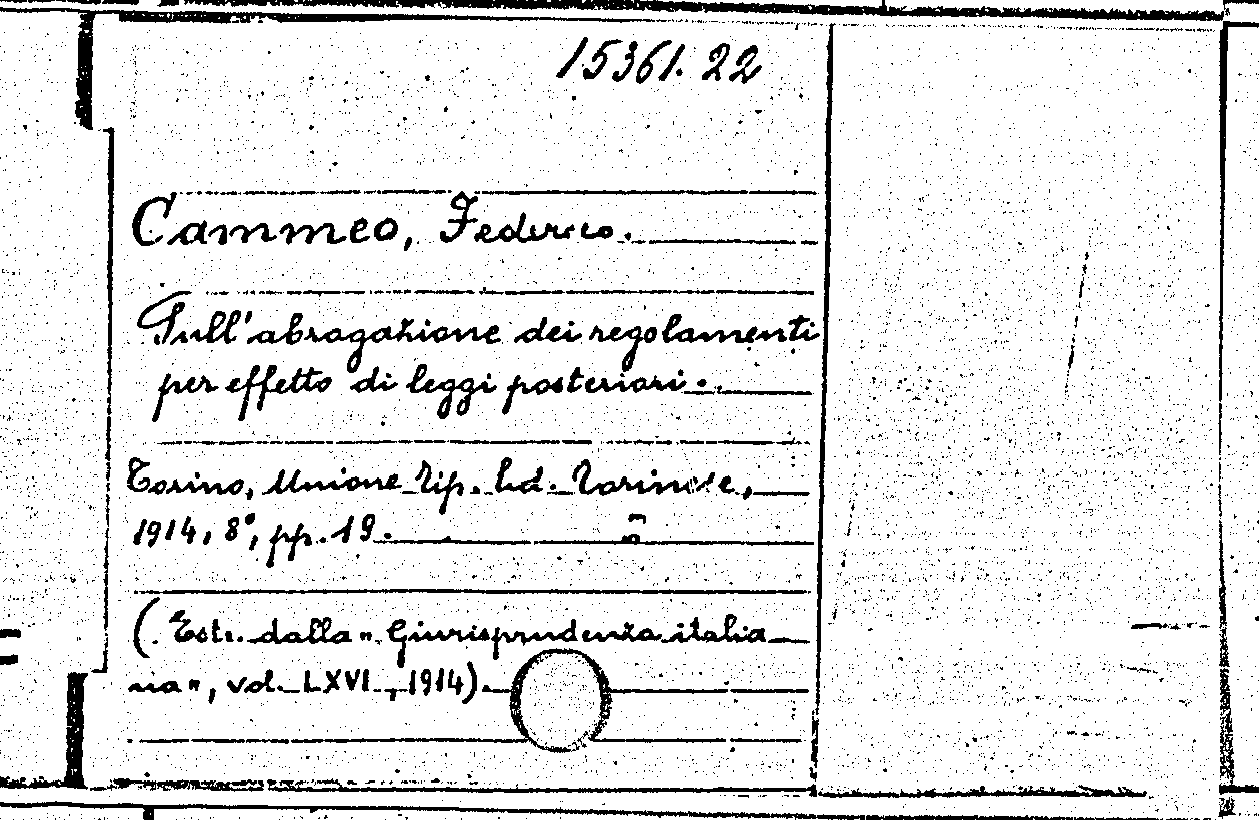 15361.22
Cammeo, Federico.
Sull'abrogazione dei regolamenti
per effetto di leggi posteriori.
Torino, Unione Tip. Ed. Torinese,
1914, 8°, pp. 19.
(Estr. dalla "Giurisprudenza italia
na", vol. LXVI, 1914).